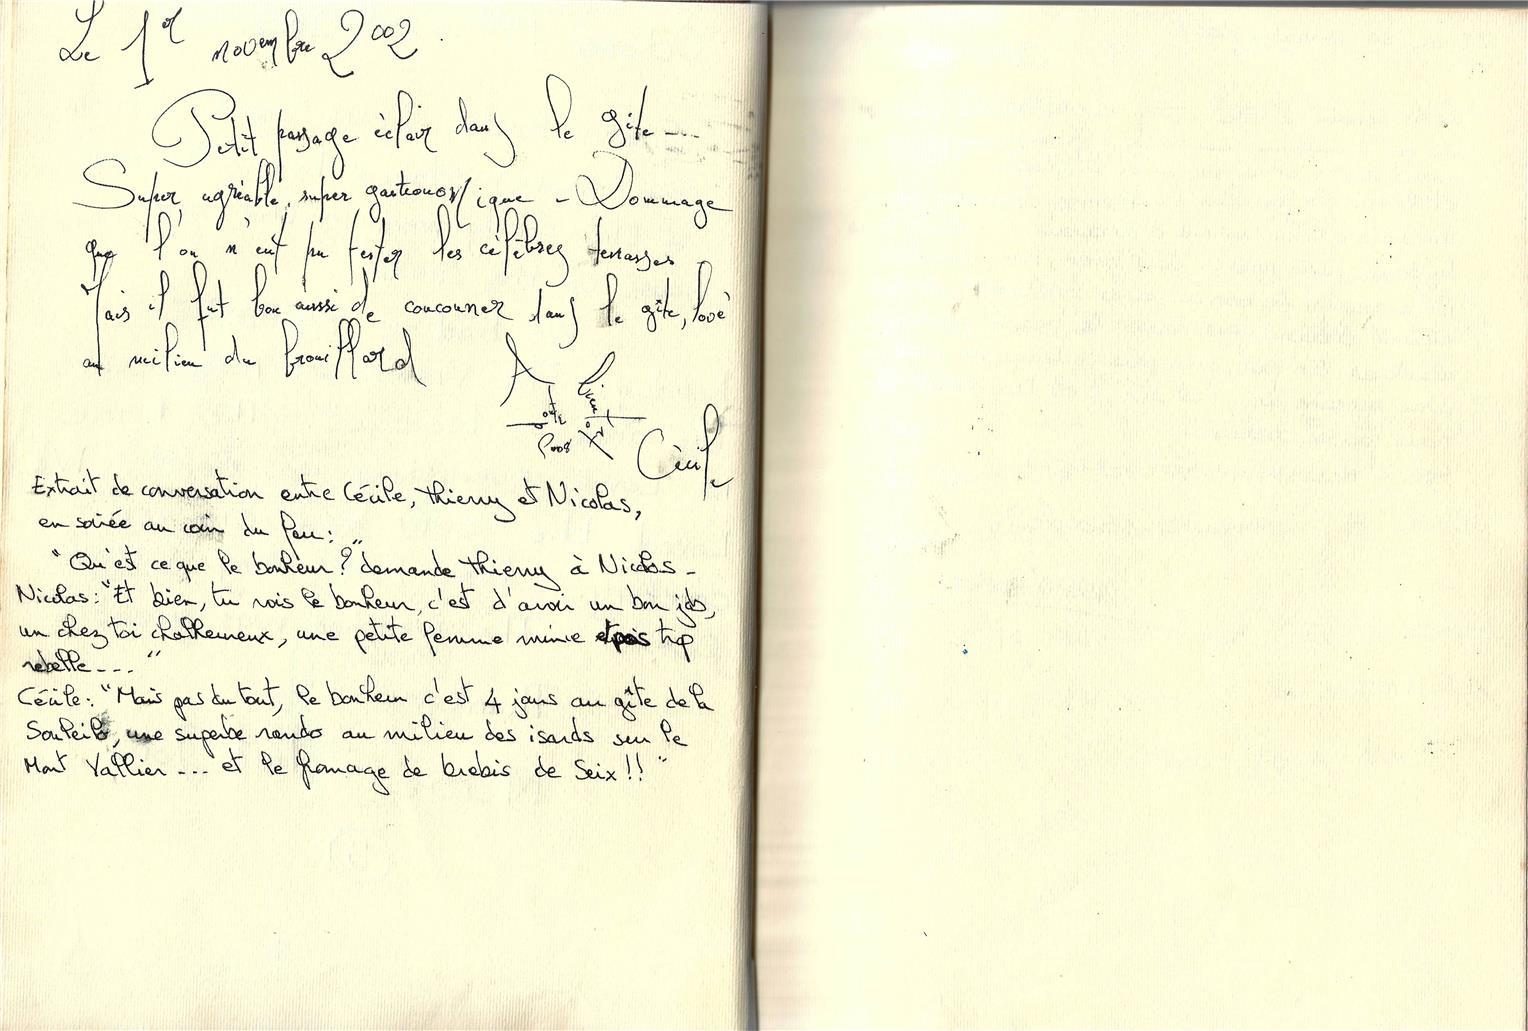 Le 1er novembre 2002.
Petit passage éclair dans le gîte ---
Super agréable, super gastronomique - Dommage
que l'on n'eut pu tester les célèbres terrasses
Mais il fut bon aussi de coucouner dans le gîte, lové
au milieu du brouillard
A
bien
Cécile
Extrait de conversation entre Cécile, Thierry et Nicolas,
en soirée au coin du feu :
"Qu'est ce que le bonheur ?" demande Thierry à Nicolas -
Nicolas : "Et bien, tu vois le bonheur, c'est d'avoir un bon job,
un chez toi chalheureux, une petite femme mince et pas trop
rebelle --- "
Cécile : "Mais pas du tout, le bonheur c'est 4 jours au gîte de la
Souleilo, une superbe rando au milieu des isards sur le
Mont Vallier --- et le fromage de brebis de Seix !! "